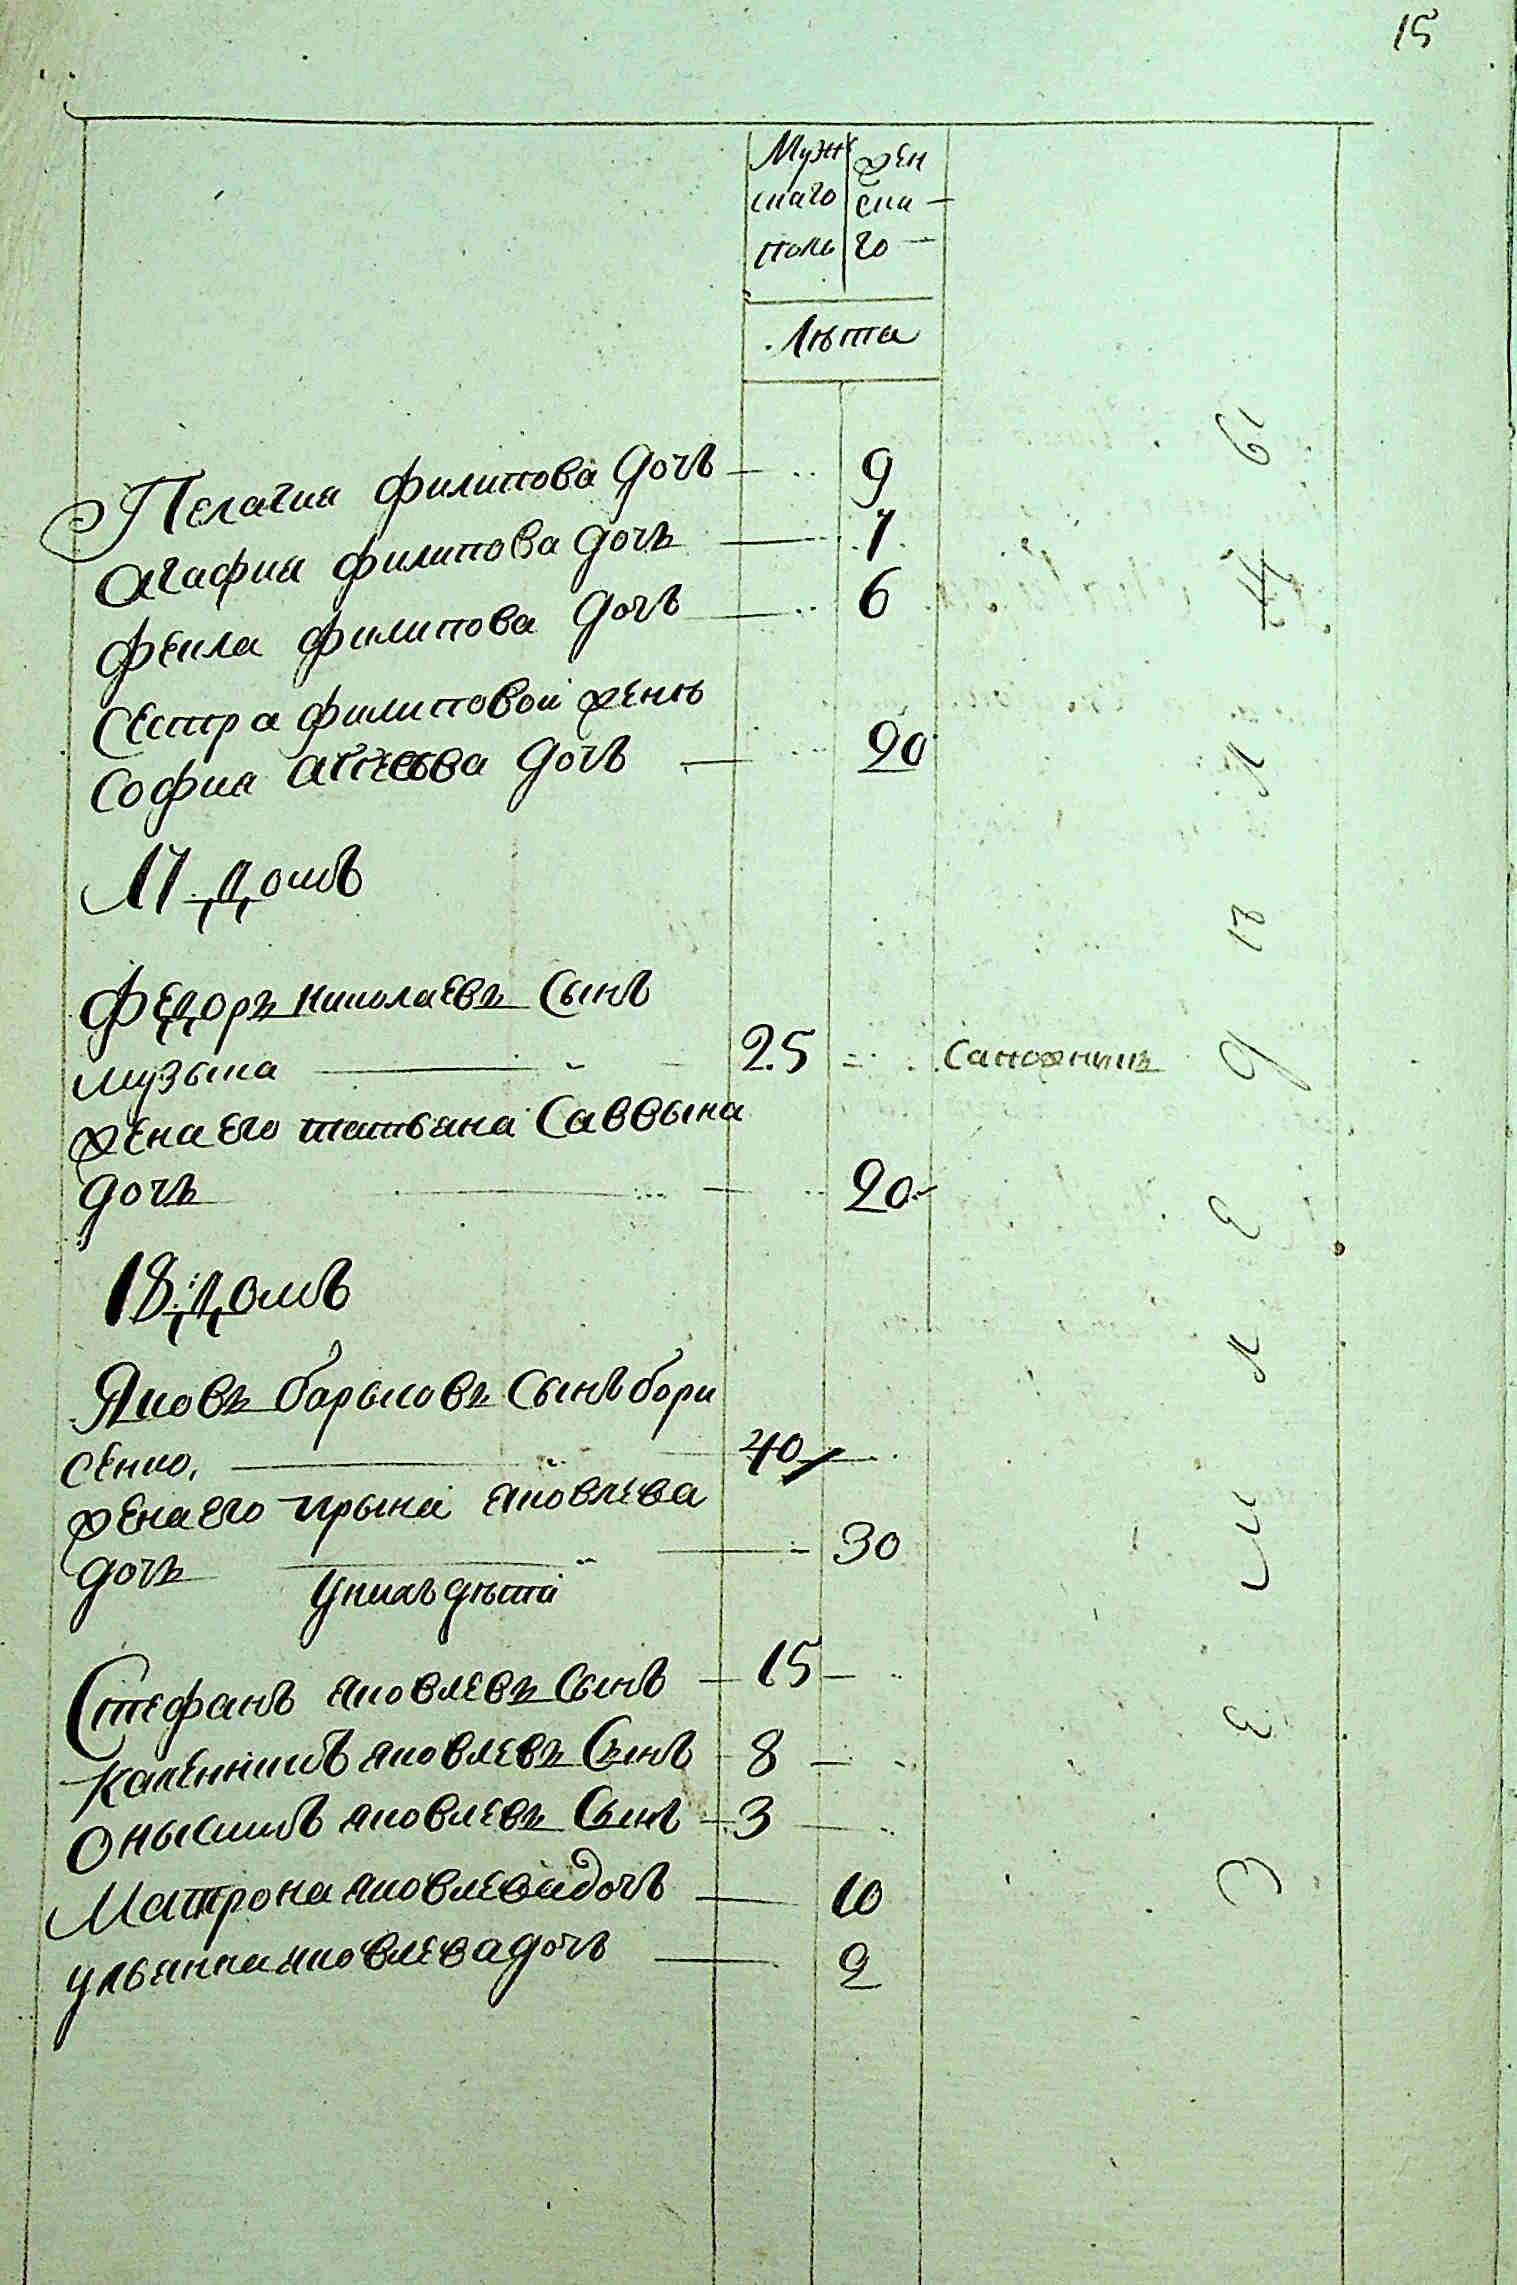 15
Муж жен
скаго ска
полъ го
Лѣта
Пелагия филипова дочъ 9
Агафия филипова дочъ 7
Фекла филипова дочъ 6
Сестра филиповой женѣ
София дочъ 20
17 домъ
Федоръ николаевъ Сынъ
музыка 25 Сапожникъ
жена его татьана Саввына
дочъ 20
18 домъ
Яковъ барысовъ Сынъ бори
сенко, 40
жена его ирына яковлева
дочъ 30
У нихъ дѣти
Стефанъ яковлевъ Сынъ 15
каленникъ яковлевъ Сынъ 8
Онысимъ яковлевъ Сынъ 3
Матрона яковлева дочъ 10
ульянна яковлева дочъ 2